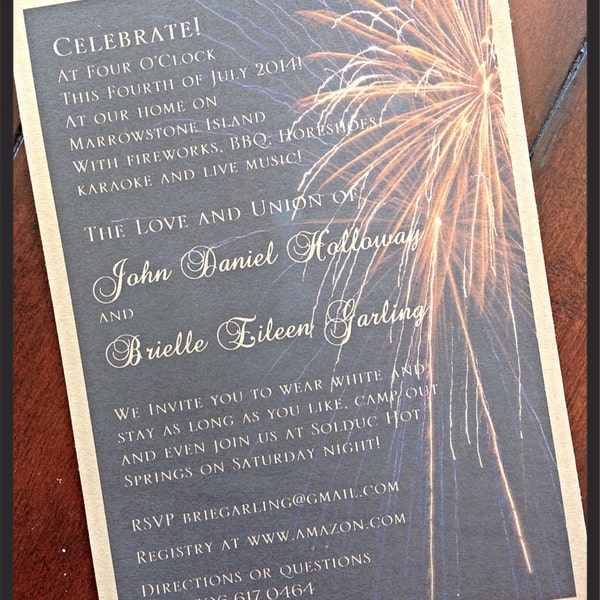 Celebrate!
At Four O'Clock
This Fourth of July 2014!
At our home on
Marrowstone Island
With fireworks, BBQ, Horeshoes!
karaoke and live music!
The Love and Union of
John Daniel Holloway
and
Brielle Eileen Garling
We Invite you to wear white and
stay as long as you like, camp out
and even join us at Solduc Hot
Springs on Saturday night!
RSVP briegarling@gmail.com
Registry at www.amazon.com
Directions or questions
617 0464